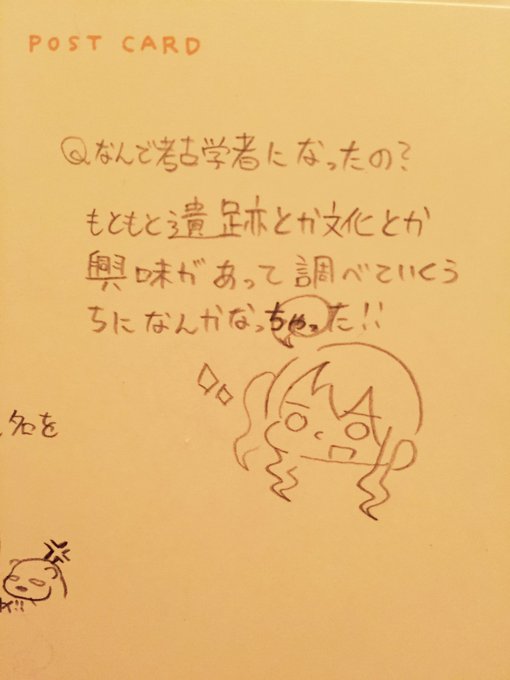 POST CARD
Qなんで考古学者になったの?
もともと遺跡とか文化とか
興味があって調べていくう
ちになんかなっちゃった!!
名を